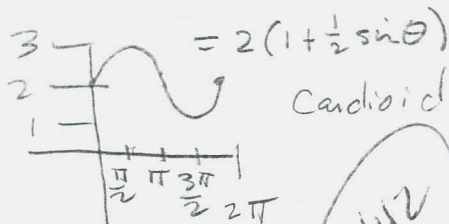 3
= 2 (1 + 1/2 sin θ)
2
Cardioid
1
π/2 π 3π/2 2π